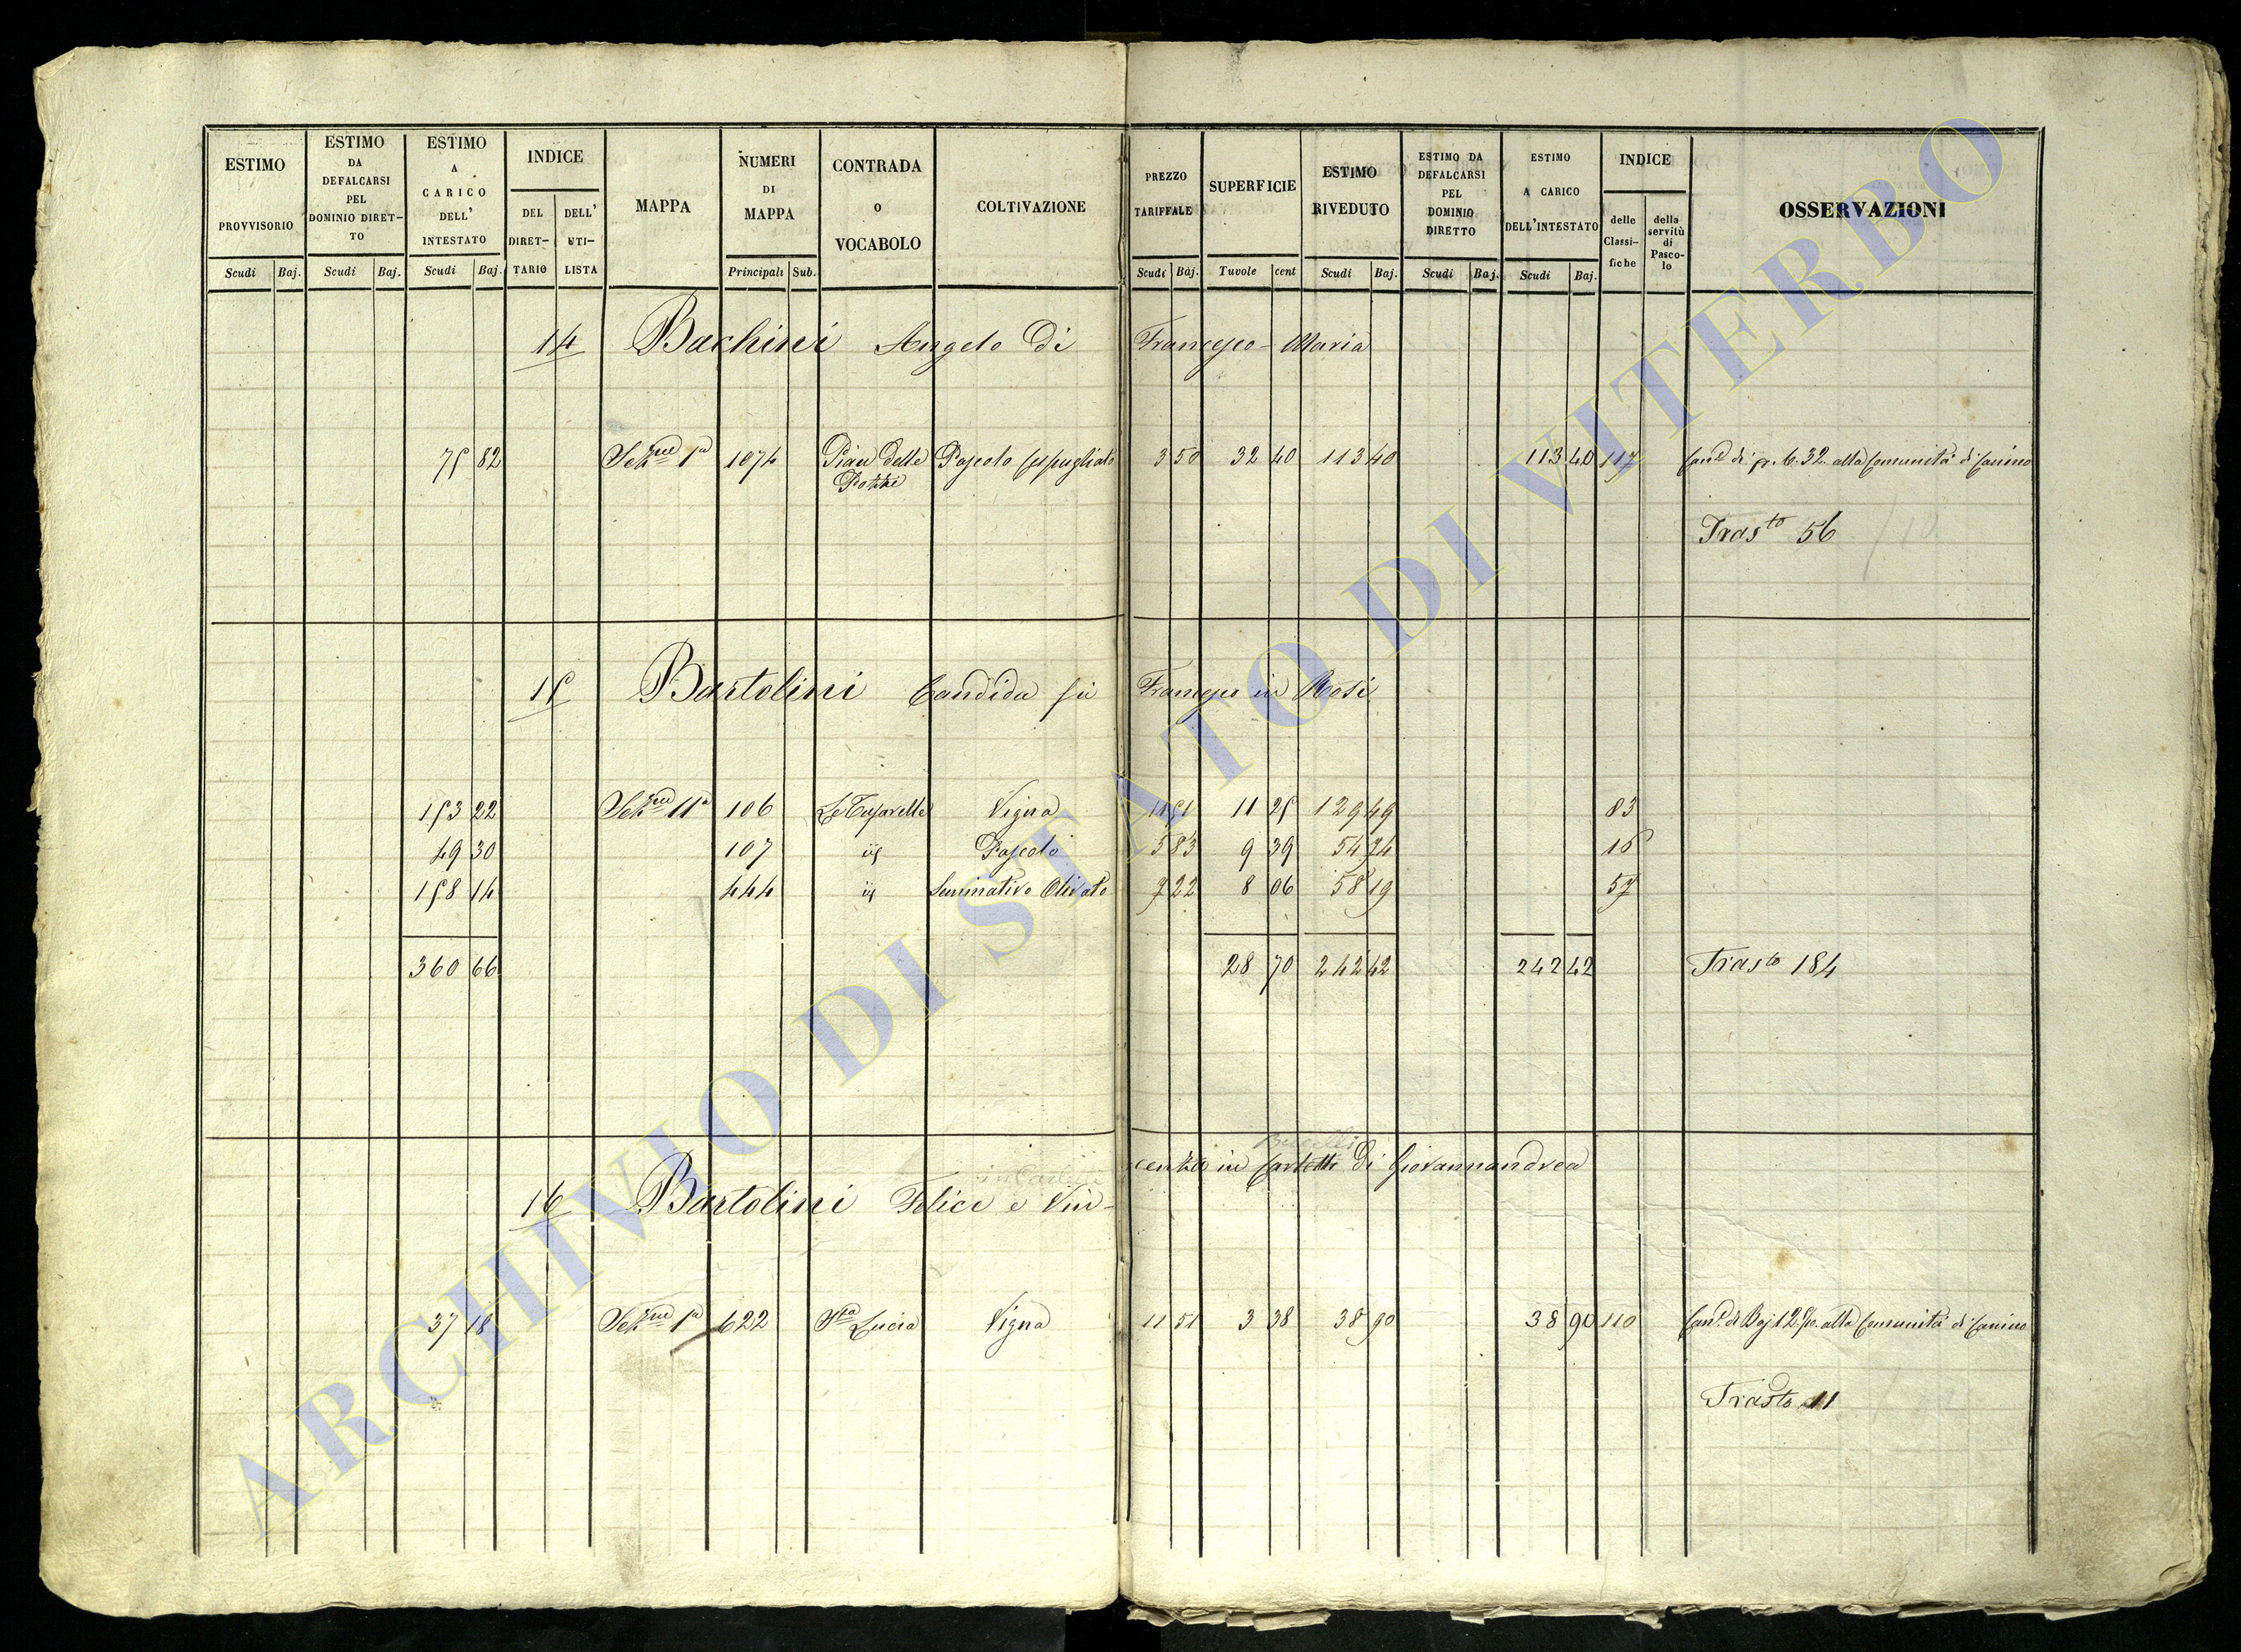 ESTIMO PROVVISORIO Scudi Baj.
ESTIMO DA DEFALCARSI PEL DOMINIO DIRET- TO Scudi Baj.
ESTIMO A CARICO DELL' INTESTATO Scudi Baj.
INDICE DEL DIRET- TARIO DELL' UTI- LISTA
MAPPA
NUMERI DI MAPPA Principali Sub.
CONTRADA o VOCABOLO
COLTIVAZIONE
PREZZO TARIFFALE Scudi Baj.
SUPERFICIE Tavole cent
ESTIMO RIVEDUTO Scudi Baj.
ESTIMO DA DEFALCARSI PEL DOMINIO DIRETTO Scudi Baj.
ESTIMO A CARICO DELL'INTESTATO Scudi Baj.
INDICE delle Classi- fiche della servitù di Pasco- lo
OSSERVAZIONI
14 Bachini Angelo Di Francesco-Maria
75 82 Sezne 1a 1074 Pian delle Pozze Pascolo Cespugliato 3 50 32 40 113 40 113 40 117 di 32 alla Comunità di Canino
Trasto 56
15 Bartolini Candida fu Francesco in Rosi
153 22 Sezne 11a 106 Vigna 11 51 11 25 129 49 83
49 30 107 Pascolo 5 83 9 39 54 74 16
158 14 444 Seminativo Olivato 7 22 8 06 58 19 57
360 66 28 70 242 42 242 42 Trasto 184
in Carletti
Bucelli
16 Bartolini Felice e Vin- cenza in Carletti di Giovannandrea
37 18 Sezne 1a 622 Sta Lucia Vigna 11 51 3 38 38 90 38 90 110 di Baj 12 alla Comunità di Canino
Trasto 11
ARCHIVIO DI STATO DI VITERBO